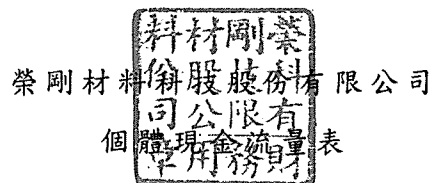 榮剛材料科技股份有限公司
個體現金流量表
榮剛材料
科技股份
有限公司
財務用章